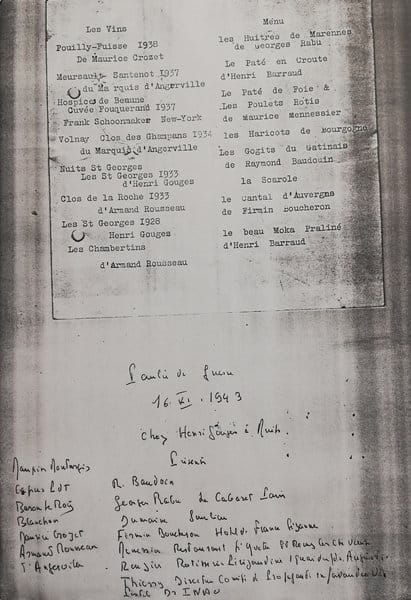 Les Vins
Pouilly-Fuisse 1938
De Maurice Crozet
Meursault Santenot 1937
du Marquis d'Angerville
Hospices de Beaune
Cuvée Fouquerand 1937
Frank Schoonmaker New-York
Volnay Clos des Champans 1934
du Marquis d'Angerville
Nuits St Georges
Les St Georges 1933
d'Henri Gouges
Clos de la Roche 1933
d'Armand Rousseau
Les St Georges 1928
Henri Gouges
Les Chambertins
d'Armand Rousseau
Menu
les Huitres de Marennes
de Georges Rabu
Le Paté en Croute
d'Henri Barraud
Le Paté de Foie &
Les Poulets Rotis
de Maurice Mennessier
les Haricots de Bourgogne
Les Gogits du Gatinais
de Raymond Baudouin
la Scarole
le Cantal d'Auvergne
de Firmin Boucheron
le beau Moka Praliné
d'Henri Barraud
Paulée de Guerre
16. XI. 1943
Chez Henri Gouges à Nuits
Présents
Capus
Baron le Roy
Blanchon
Maurice Crozet
Armand Rousseau
d'Angerville
R. Baudoin
Georges Rabu du Cabaret
Dumaine Saulieu
Firmin Boucheron Hotel de France
Restaurant
Rouzier Rotisserie
Thierry Directeur Comité de Propagande
INAO